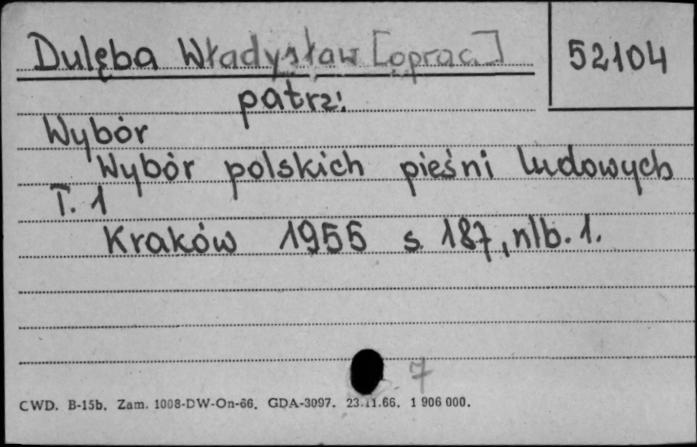 Dulęba Władysław [oprac.]
52104
patrz:
Wybór
Wybór polskich pieśni ludowych
T. 1
Kraków 1955 s. 187, nlb. 1.
7
CWD. B-15b. Zam. 1008-DW-On-66. GDA-3097. 23.11.66. 1 906 000.